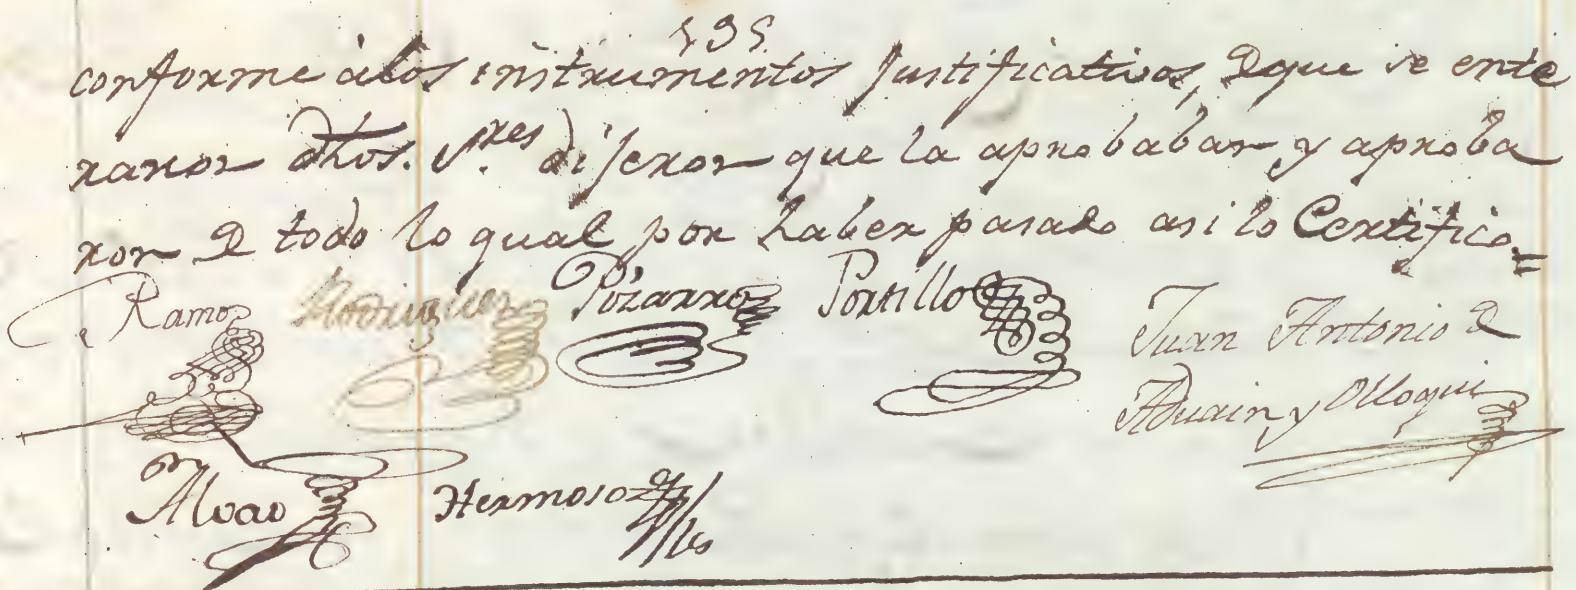 conforme àlos instrumentos Justificativos, Dque se ente
raron dhos. Sres. dijeron que la aprobaban y aproba
ron D todo lo qual por haber pasado asi lo Certifico=
Ramos Rodriguez Pizarro Portillo Juan Antonio D
Aduain y Olloqui
Hermoso